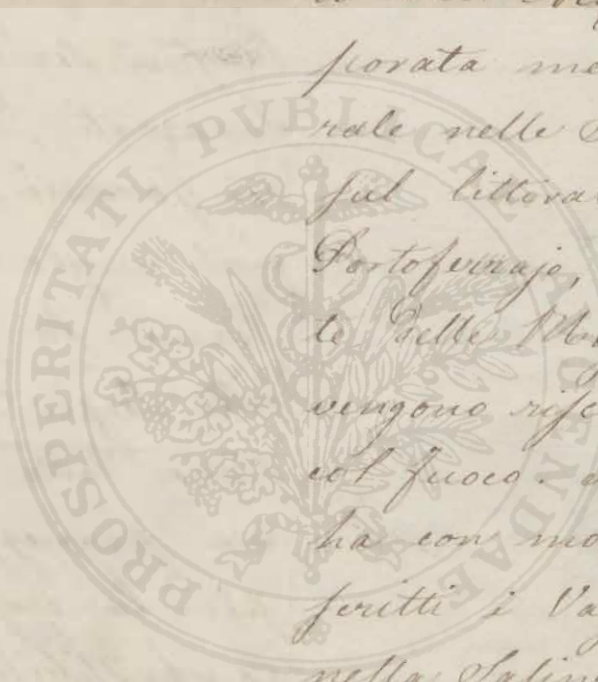 PROSPERITATI PVBLICAE AVGENDAE
porata me
rale nelle S
sul littora
Portoferrajo,
te delle Mo
vengono risc
col fuoco. a
ha con mo
scritti i Va
nella Salin